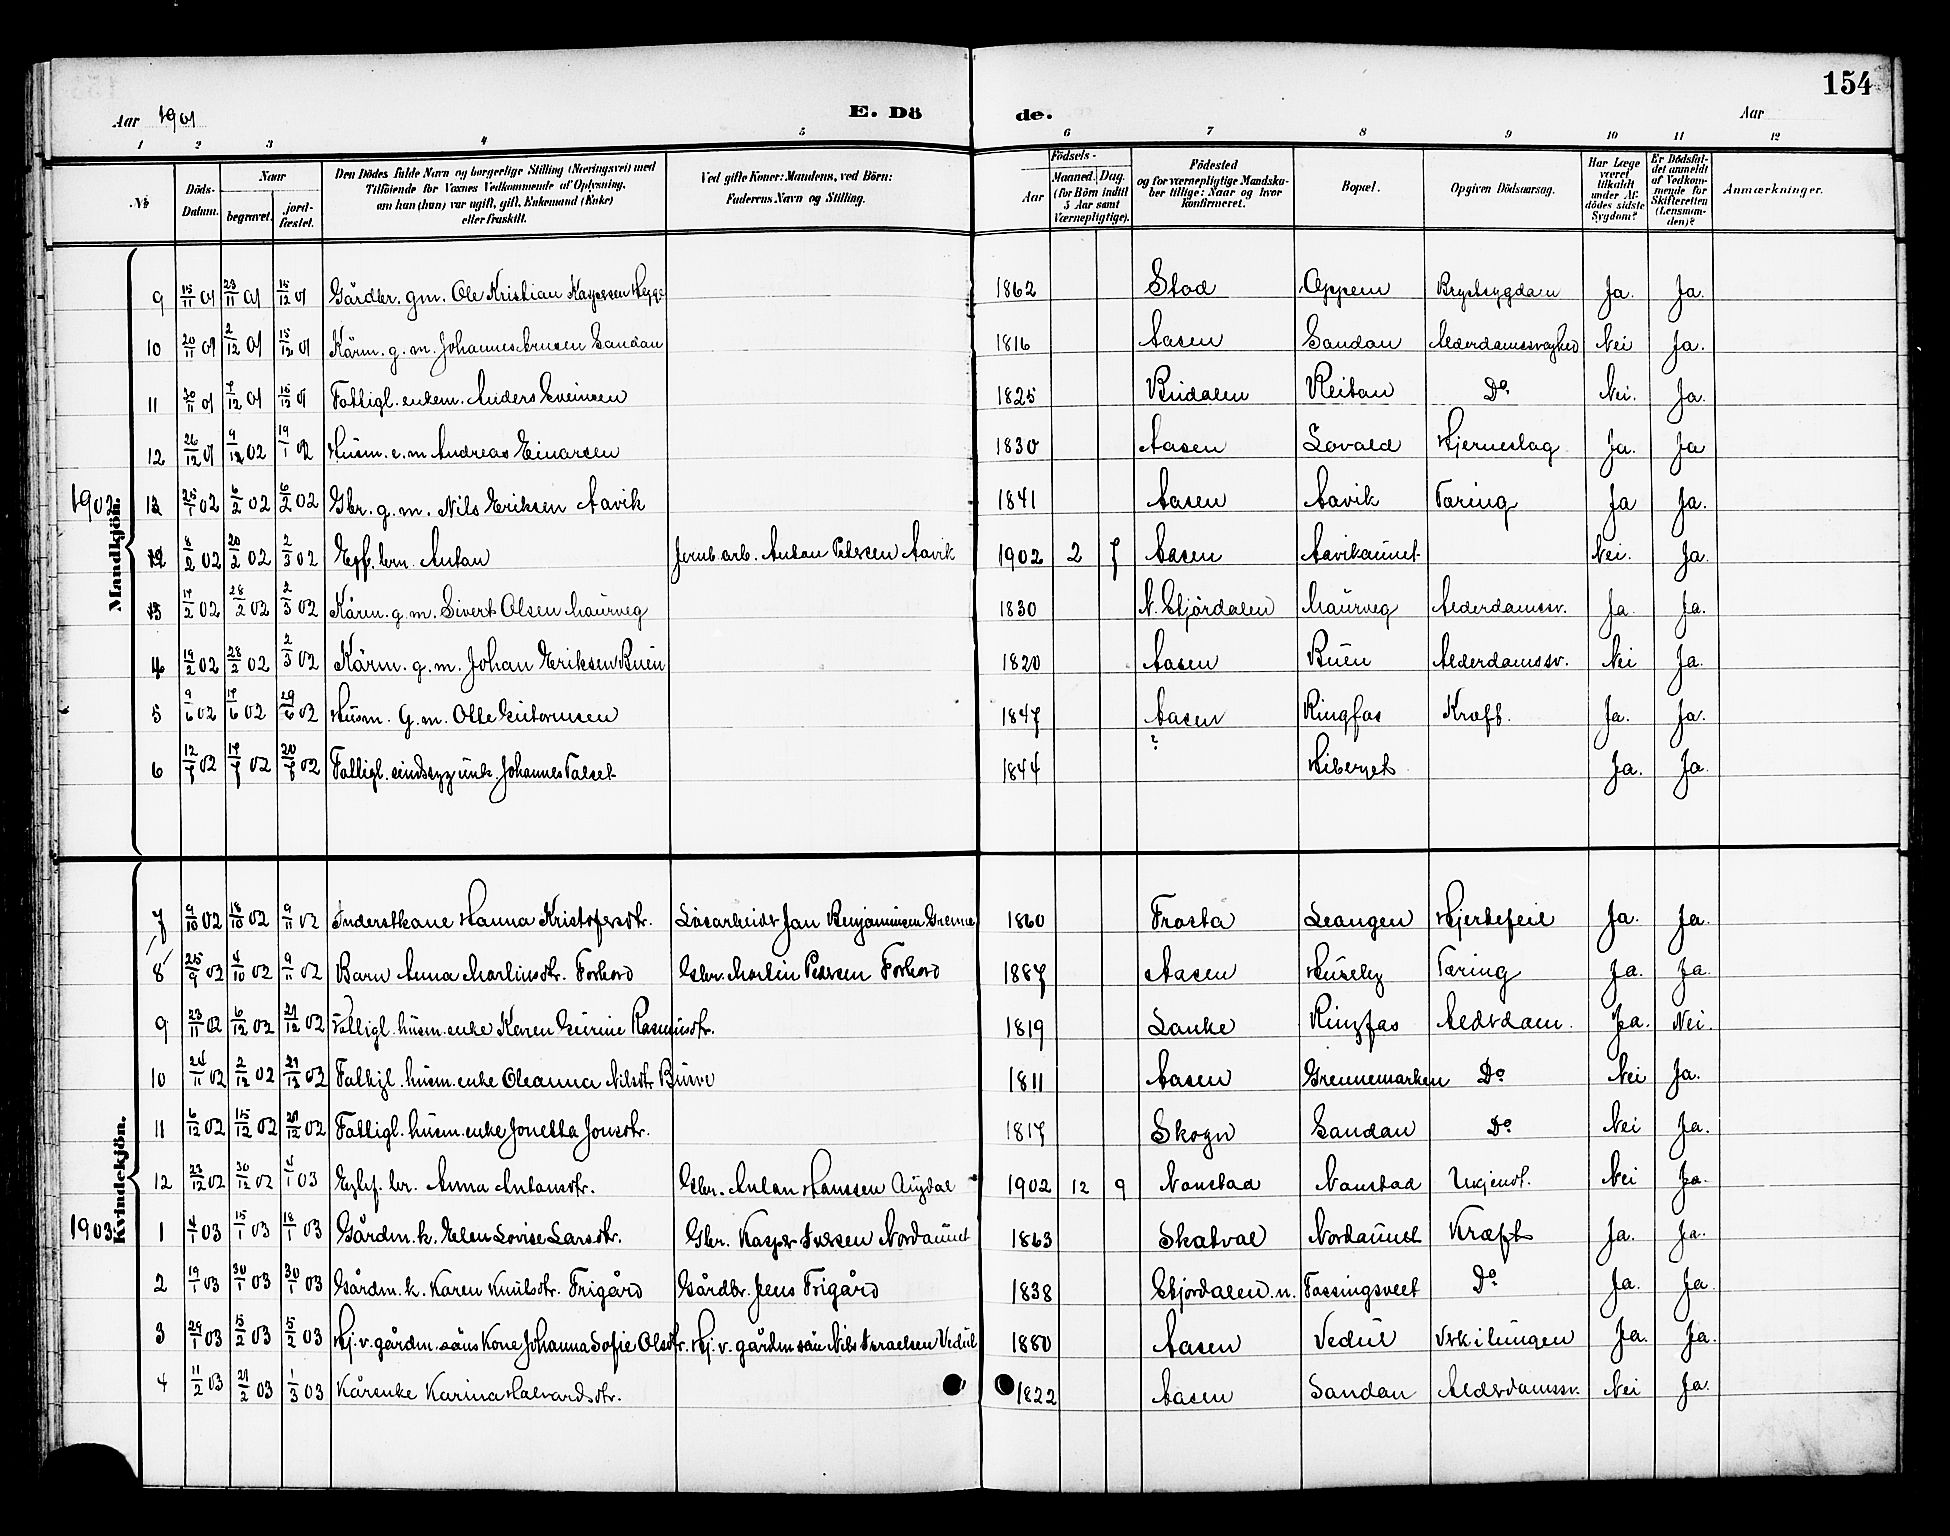 154
Aar 1901 E. Dö de. Aar
1 2 3 4 5 6 7 8 9 10 11 12
№ Döds-Datum. Naar begravet. jord-fæstet. Den Dödes fulde Navn og borgerlige Stilling (Næringsvei) med Tilföiende for Voxnes Vedkommende af Oplysning, om han (hun) var ugift, gift, Enkemand (Enke) eller fraskilt. Ved gifte Koner: Mandens, ved Börn: Faderens Navn og Stilling. Födsels- Aar Maaned. Dag. (for Börn indtil 5 Aar samt Værnepligtige). Födested og for værnepligtige Mandskaber tillige: Naar og hvor konfirmeret. Bopæl. Opgiven Dödsaarsag. Har Læge været tilkaldt under Afdödes sidste Sygdom? Er Dödsfaldet anmeldt af Vedkommende for Skifteretten (Lensmanden)? Anmærkninger.
Mandkjön.
9 15/11 01 23/11 01 15/12 01 Gårdbr. gm. Ole Kristian Kaspersen Hegge 1862 Stod Oppem Brystsygdom Ja. Ja.
10 20/11 01 2/12 01 15/12 01 Kårm. g. m. Johannes Sandan 1816 Aasen Sandan Alderdomssvaghed Nei Ja.
11 30/11 01 7/12 01 15/12 01 Fattigl. enkem. Anders Eveinsen 1825 Budalen Reitan Do. Nei. Ja.
12 26/12 01 9/12 02 19/1 02 Husm. e. m Andreas Einarsen 1830 Aasen Lovald Hjerneslag Ja. Ja
1902 25/1 02 6/2 02 6/2 02 Gbr. g. m. Nils Eriksen Aavik 1841 Aasen Aavik Tæring Ja Ja.
8/2 02 20/2 02 2/3 02 Egf. brn. Anton Jernb arb. Anton Petersen Aavik 1902 2 7 Aasen Aavikaunet Nei. Ja.
3 17/2 02 28/2 02 2/3 02 Kårm. g. m. Sivert Olsen Maurveg 1830 N. Stjördalen Maurveg Alderdomssv. Ja Ja.
4 19/2 02 28/2 02 2/3 02 Kårm. g. m. Johan Eriksen Buen 1820 Aasen Buen Alderdomssv. Nei Ja.
5 9/6 02 17/6 02 29/6 02 Husm. G. m. Olle Guttormsen 1847 Aasen Ringfas Kræft. Ja. Ja.
6 12/7 02 17/7 02 20/7 02 Fattigl. sindssyg unk. Johannes Talset 1844 ? Hiberget Ja. Ja.
Kvindekjön.
7 9/10 02 18/10 02 9/11 02 Inderstkone Hanna Kristofersdtr. Løsarbeider Jan Benjaminsen Grenne 1860 Frosta Leangen Hjertefeil Ja. Ja.
8 25/9 02 4/10 02 9/11 02 Barn Anna Martinsdtr. Forbord Gbr. Martin Petersen Forbord 1887 Aasen Huseby Tæring Ja. Ja.
9 23/11 02 6/12 02 21/12 02 Fattigl. husm. enke Karen Gurine Rasmusdtr. 1819 Lanke Ringfas Alderdom. Ja. Nei.
10 24/11 02 2/12 02 21/12 02 Fattigl. husm. enke Oleanna Nilsdtr Busve 1811 Aasen Grennemarken Do. Nei Ja.
11 6/12 02 15/12 02 21/12 02 Fattigl. husm. enke Jonetta Jonsdtr. 1817 Skogn Sandan Do. Nei Ja.
12 23/12 02 30/12 02 4/1 03 Egtef. br. Anna Antonsdtr. Gbr. Anton Hanssen Augdal 1902 12 9 Nonstad Nonstad Ukjendt. Nei Ja.
1903 1 4/1 03 15/1 03 18/1 03 Gårdm. k. Elen Lovise Larsdtr. Gbr. Kasper Iversen Nordaunet 1863 Skatval Nordaunet Kræft Ja. Ja.
2 19/1 03 30/1 03 30/1 03 Gårdm. k. Karen Knutsdtr. Frigård Gårdbr. Jens Frigård 1838 Stjordalen. n. Fossingsveet Do. Ja. Ja
3 29/1 03 5/2 03 5/2 03 Hj. v. gårdm. søns Kone Johanna Sofie Olsdtr. Hj. v. gårdm søn Nils Israelsen Vedul 1880 Aasen Vedul Ja. Ja.
4 11/2 03 21/2 03 1/3 03 Kårenke Karina Halvardsdtr. 1822 Aasen Sandan Alderdomssv. Nei Ja.